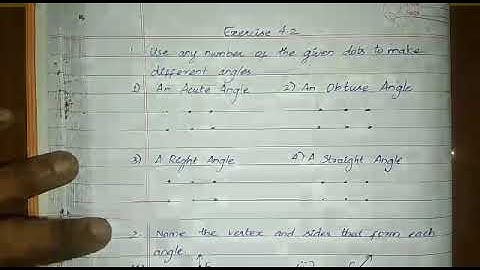 Exercise 4.2
1. Use any number of the given dots to make
different angles.
1) An Acute Angle 2) An Obtuse Angle
3) A Right Angle 4) A Straight Angle
2. Name the vertex and sides that form each
angle.